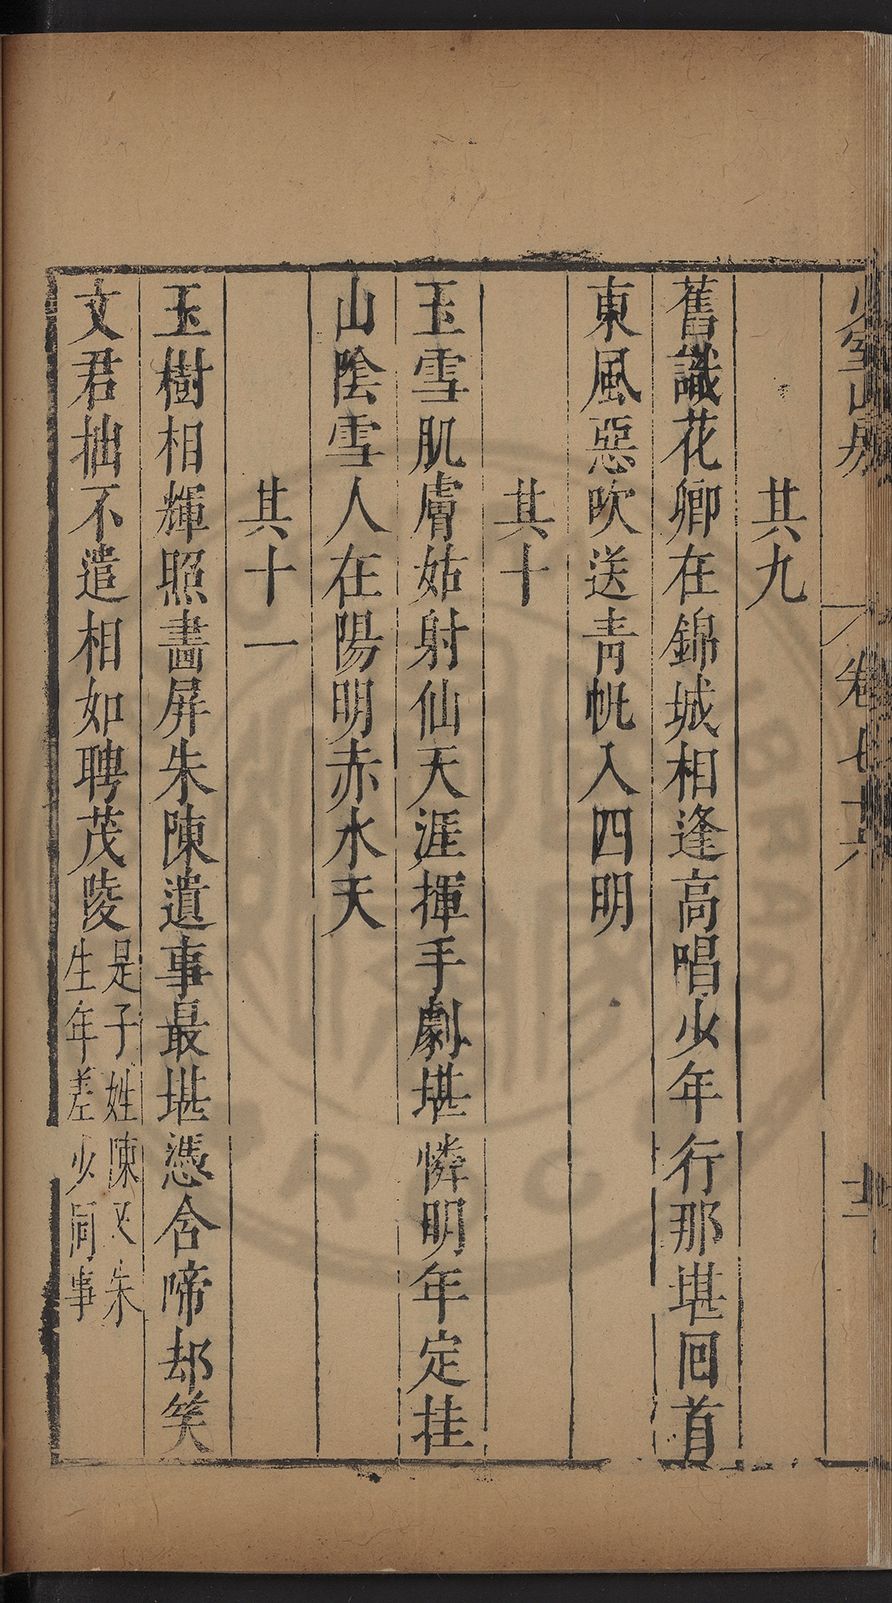 少室山房
卷七十六
十二
其九
舊識花卿在錦城相逢高唱少年行那堪回首
東風惡吹送青帆入四明
其十
玉雪肌膚姑射仙天涯揮手劇堪憐明年定挂
山陰雪人在陽明赤水天
其十一
玉樹相輝照畵屏朱陳遺事最堪憑含啼却笑
文君拙不遣相如聘茂陵
是子姓陳又朱
生年差少同事